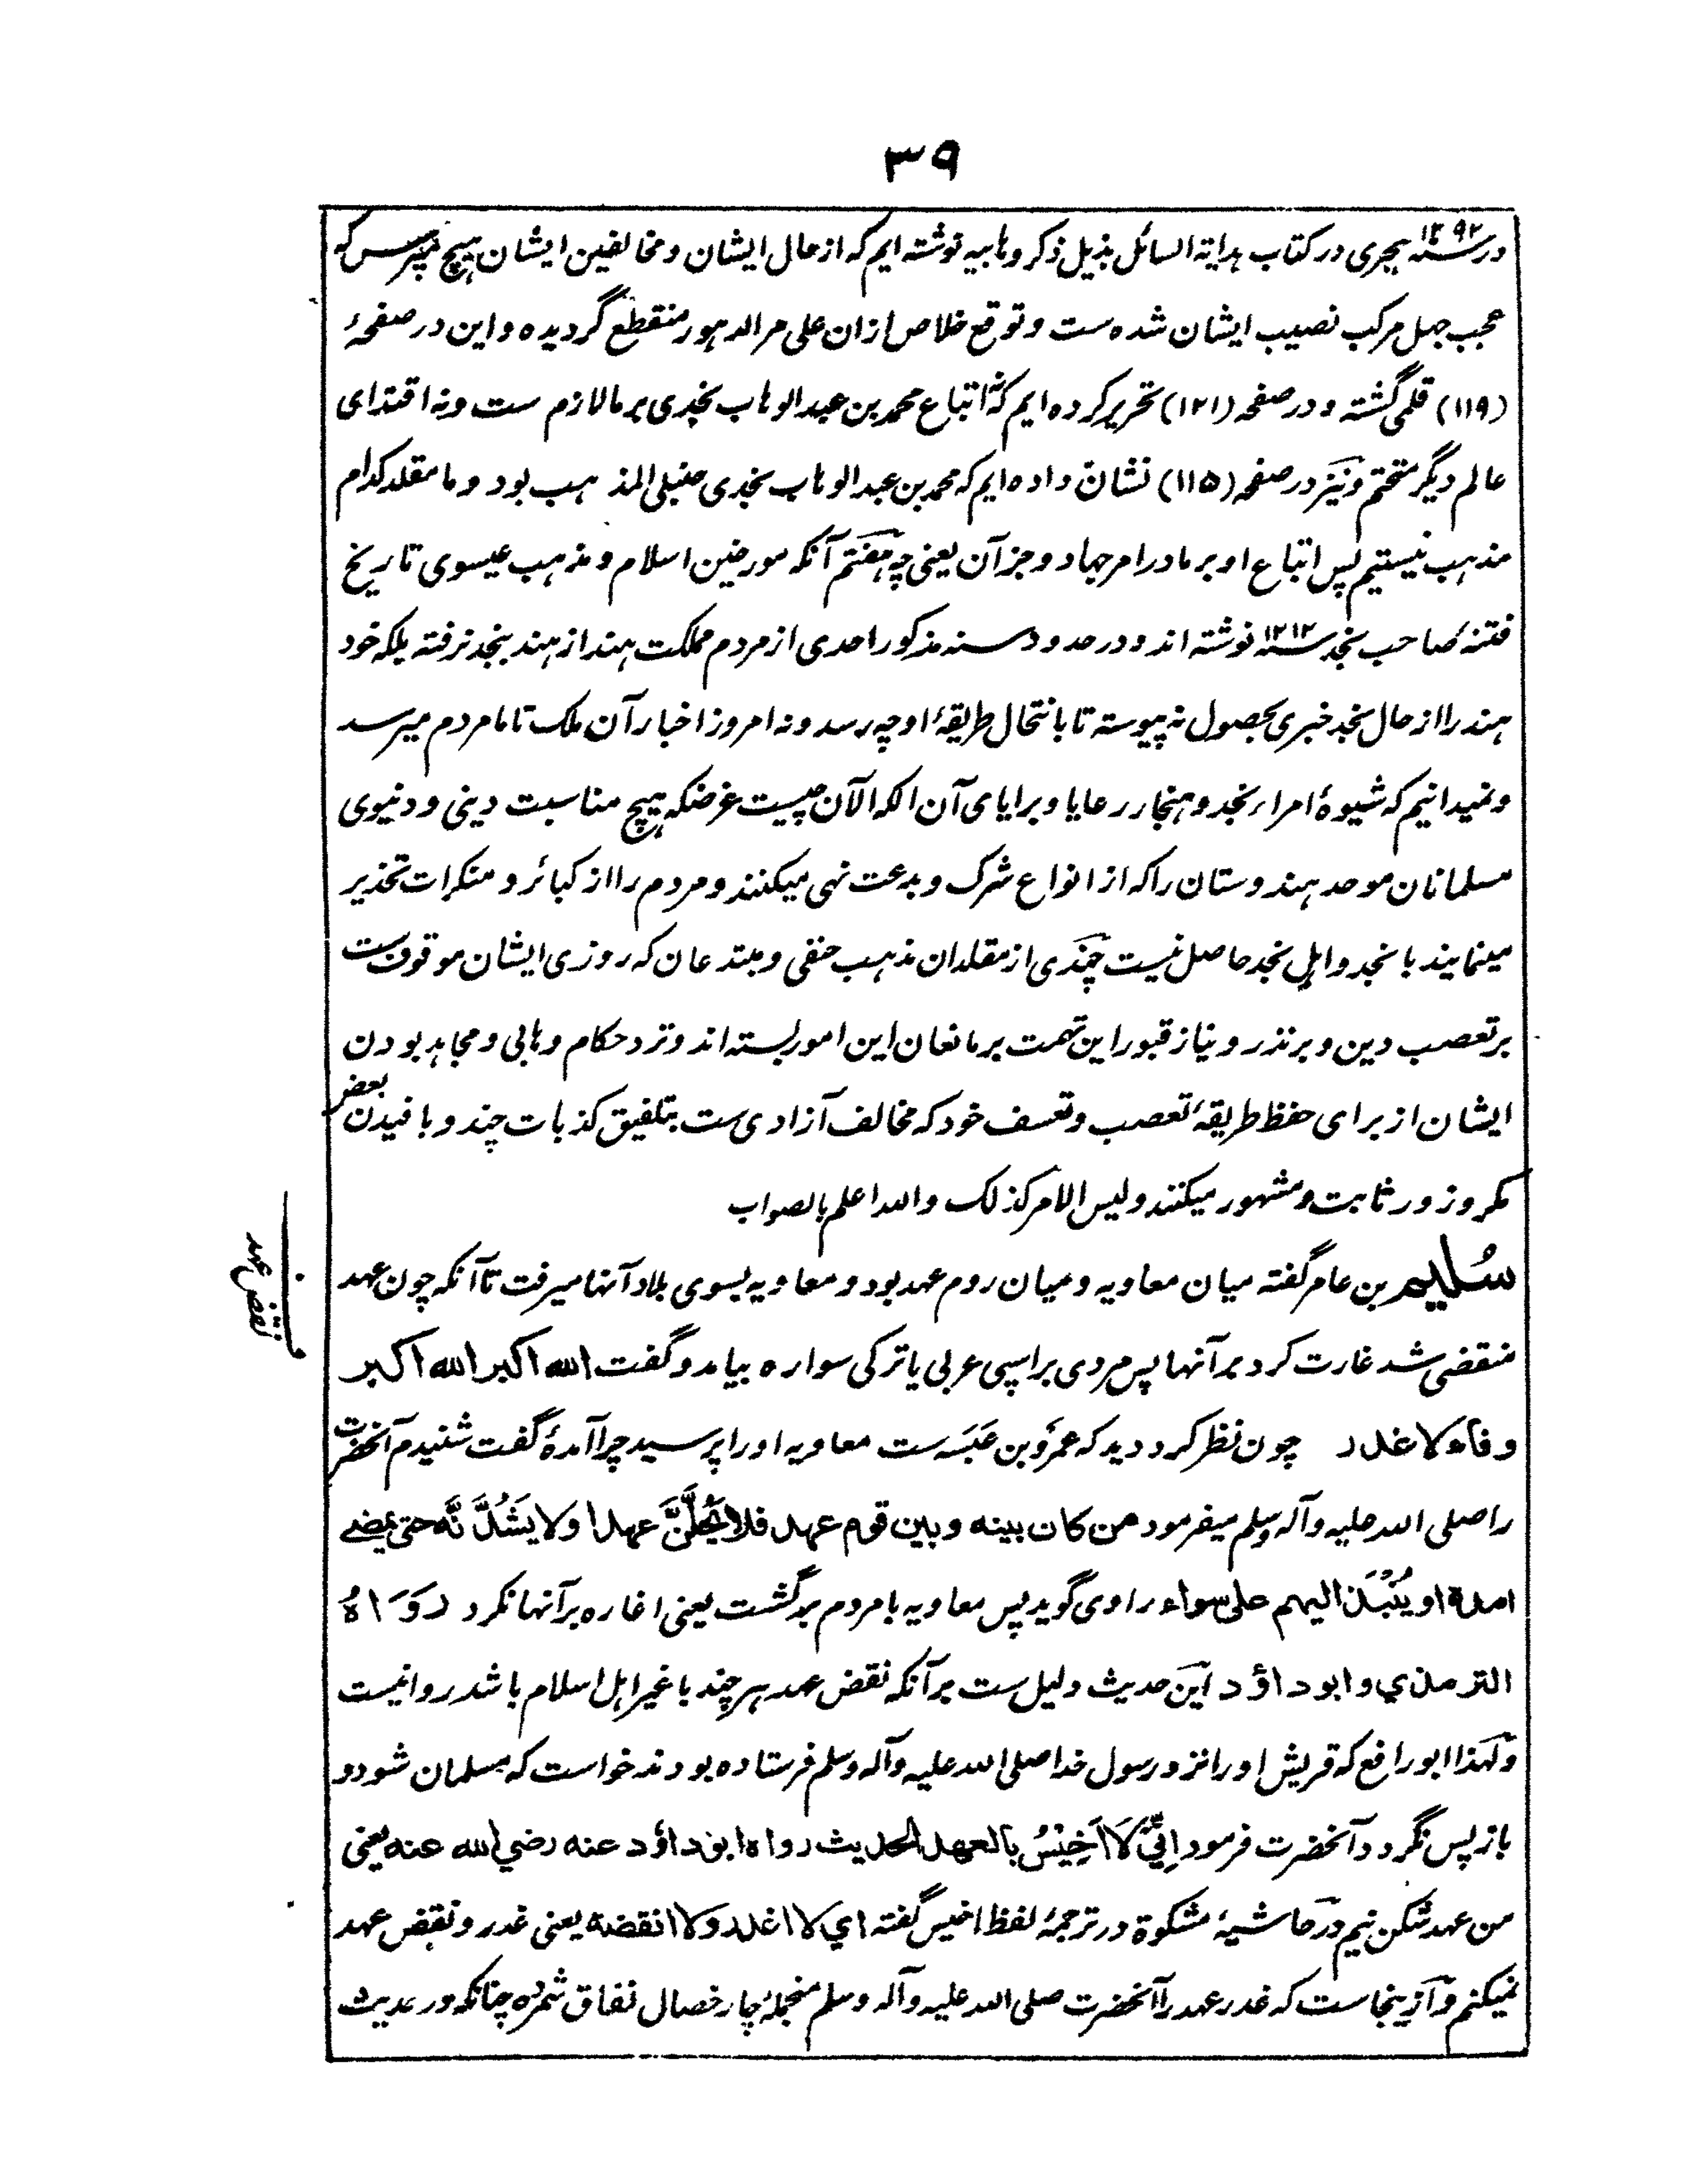 ۳۹
در سنه ۱۲۹۲ هجری در کتاب هدایة السائل بذیل ذکر وهابیه نوشته ایم که از حال ایشان و مخالفین ایشان هیچ مپرس که
عجب جهل مرکب نصیب ایشان شده ست و توقع خلاص ازان علی مر الدهور منقطع گردیده و این در صفحهٔ
(۱۱۹) قلمی گشته و در صفحه (۱۲۱) تحریر کرده ایم که نه اتباع محمد بن عبد الوهاب نجدی بر ما لازم ست و نه اقتدای
عالم دیگر متحتم و نیز در صفحه (۱۱۵) نشان داده ایم که محمد بن عبد الوهاب نجدی حنبلی المذهب بود و ما مقلد کدام
مذهب نیستیم پس اتباع او بر ما در امر جهاد و جز آن یعنی چه هفتم آنکه مورخین اسلام و مذهب عیسوی تاریخ
فتنهٔ صاحب نجد سنه ۱۲۱۲ نوشته اند و در حدود سنه مذکور احدی از مردم مملکت هند از هند بنجد نرفته بلکه خود
هند را از حال نجد خبری بحصول نه پیوسته تا بانتحال طریقهٔ او چه رسد و نه امروز اخبار آن ملک تا ما مردم میرسد
و نمیدانیم که شیوهٔ امراء نجد و هنجار رعایا و برایای آن الکه الآن چیست غرضکه هیچ مناسبت دینی و دنیوی
مسلمانان موحد هندوستان را که از انواع شرک و بدعت نهی میکنند و مردم را از کبائر و منکرات تحذیر
مینمایند با نجد و اهل نجد حاصل نیست چندی از مقلدان مذهب حنفی و مبتدعان که روزی ایشان موقوف ست
بر تعصب دین و بر نذر و نیاز قبور این تهمت بر مانعان این امور بسته اند و نزد حکام وهابی و مجاهد بودن بعض
ایشان از برای حفظ طریقهٔ تعصب و تعسف خود که مخالف آزادی ست بتلفیق کذبات چند و بافیدن
مکر و زور ثابت و مشهور میکنند و لیس الامر کذلک و الله اعلم بالصواب
سُلیم بن عامر گفته میان معاویه و میان روم عهد بود و معاویه بسوی بلاد آنها میرفت تا آنکه چون عهد
منقضی شد غارت کرد بر آنها پس مردی بر اسپی عربی یا ترکی سواره بیامد و گفت الله اکبر الله اکبر
وفاء لا غدر چون نظر کرد دید که عمرو بن عَبَسَه ست معاویه او را پرسید چرا آمدهٔ گفت شنیدم آنحضرت
را صلی الله علیه و آله وسلم میفرمود من کان بینه و بین قوم عهد فلا یَحُلَّنَّ عهدا و لا یَشُدَّنَّه حتی یمضے
امده او یُنْبَذ الیهم علی سواء راوی گوید پس معاویه با مردم برگشت یعنی اغاره بر آنها نکرد رَوَاهُ
الترمذي و ابو داؤد این حدیث دلیل ست بر آنکه نقض عهد هر چند با غیر اهل اسلام باشد روا نیست
و لهذا ابو رافع که قریش او را نزد رسول خدا صلی الله علیه و آله وسلم فرستاده بودند خواست که مسلمان شود و
باز پس نگردد آنحضرت فرمود اِنِّي لَا اَخِیْسُ بالعهد الحدیث رواه ابو داؤد عنه رضي الله عنه یعنی
من عهد شکن نیم در حاشیهٔ مشکوة در ترجمهٔ لفظ اخیس گفته اي لا اغدر و لا انقضه یعنی غدر و نقض عهد
نمیکنم و از ینجاست که غدر عهد را آنحضرت صلی الله علیه و آله وسلم منجملهٔ چار خصال نفاق شمرده چنانکه در حدیث
نقض عهد